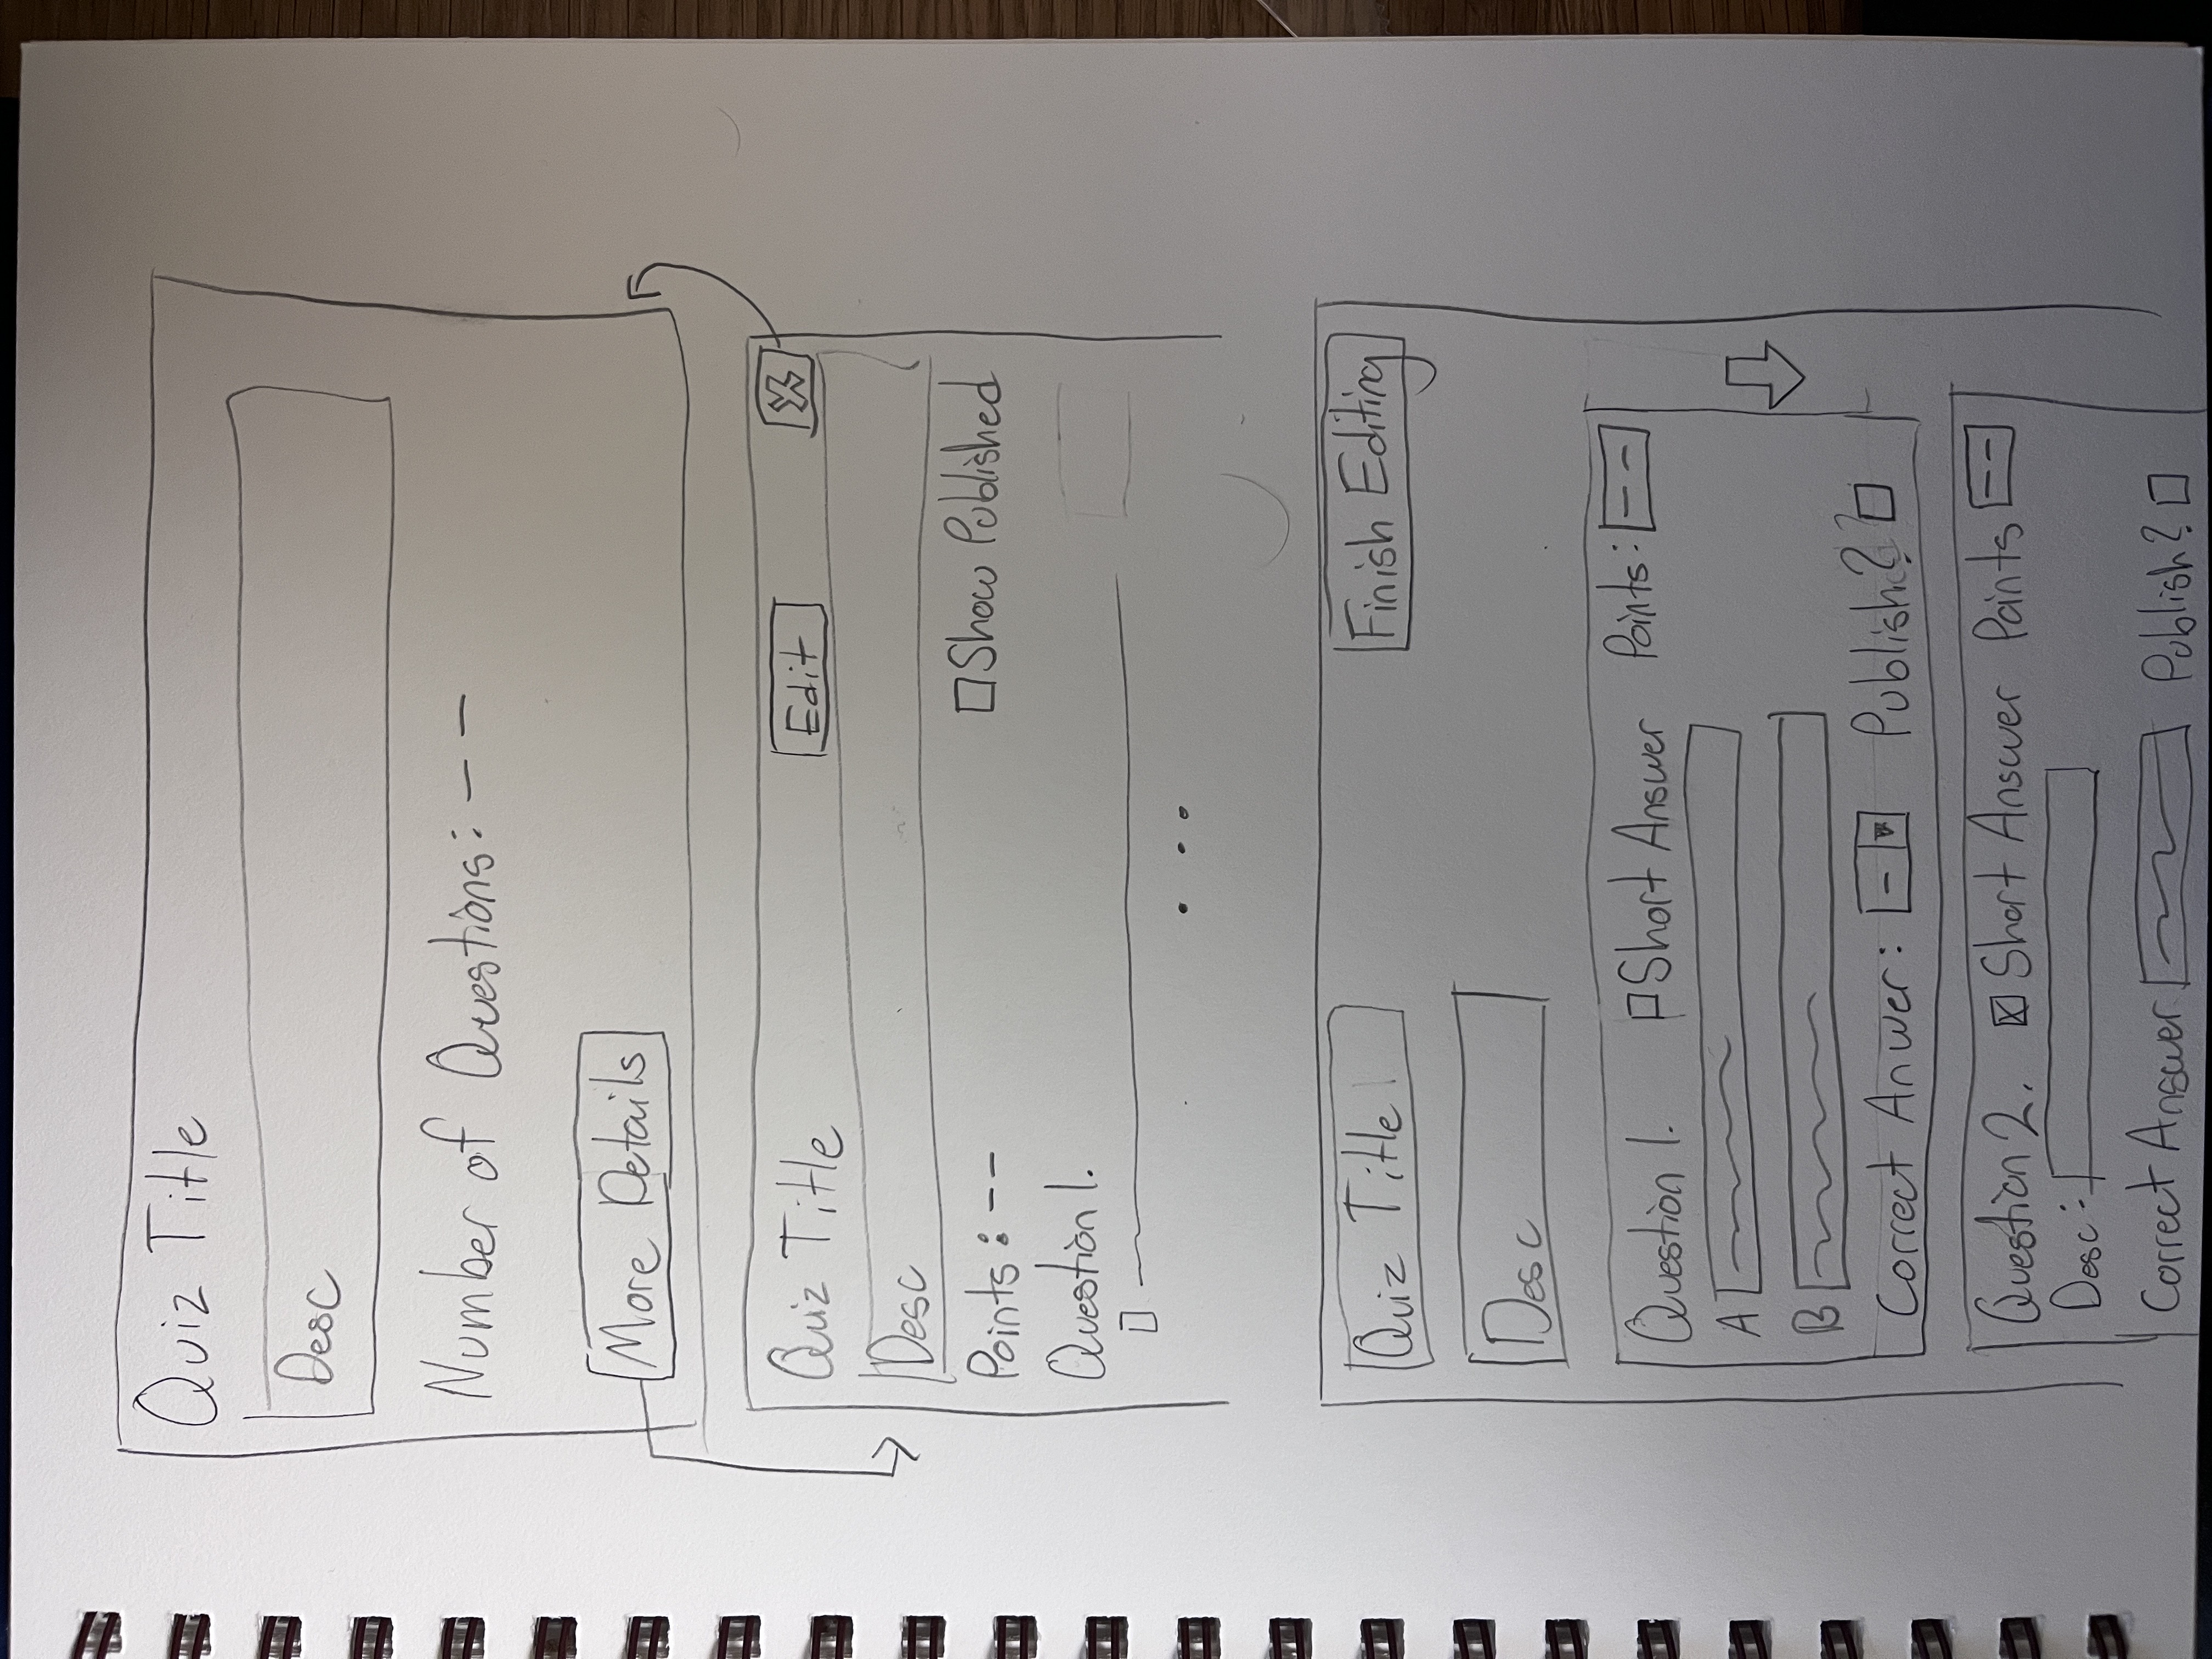 Quiz Title
Desc
Number of Questions: - -
More Details
Quiz Title Edit X
Desc
Points: - - Show Published
Question 1.
...
Quiz Title Finish Editing
Desc
Question 1. Short Answer Points: - -
A
B
Correct Anwer: - Publish?
Question 2. X Short Answer Points - -
Desc:
Correct Answer Publish?